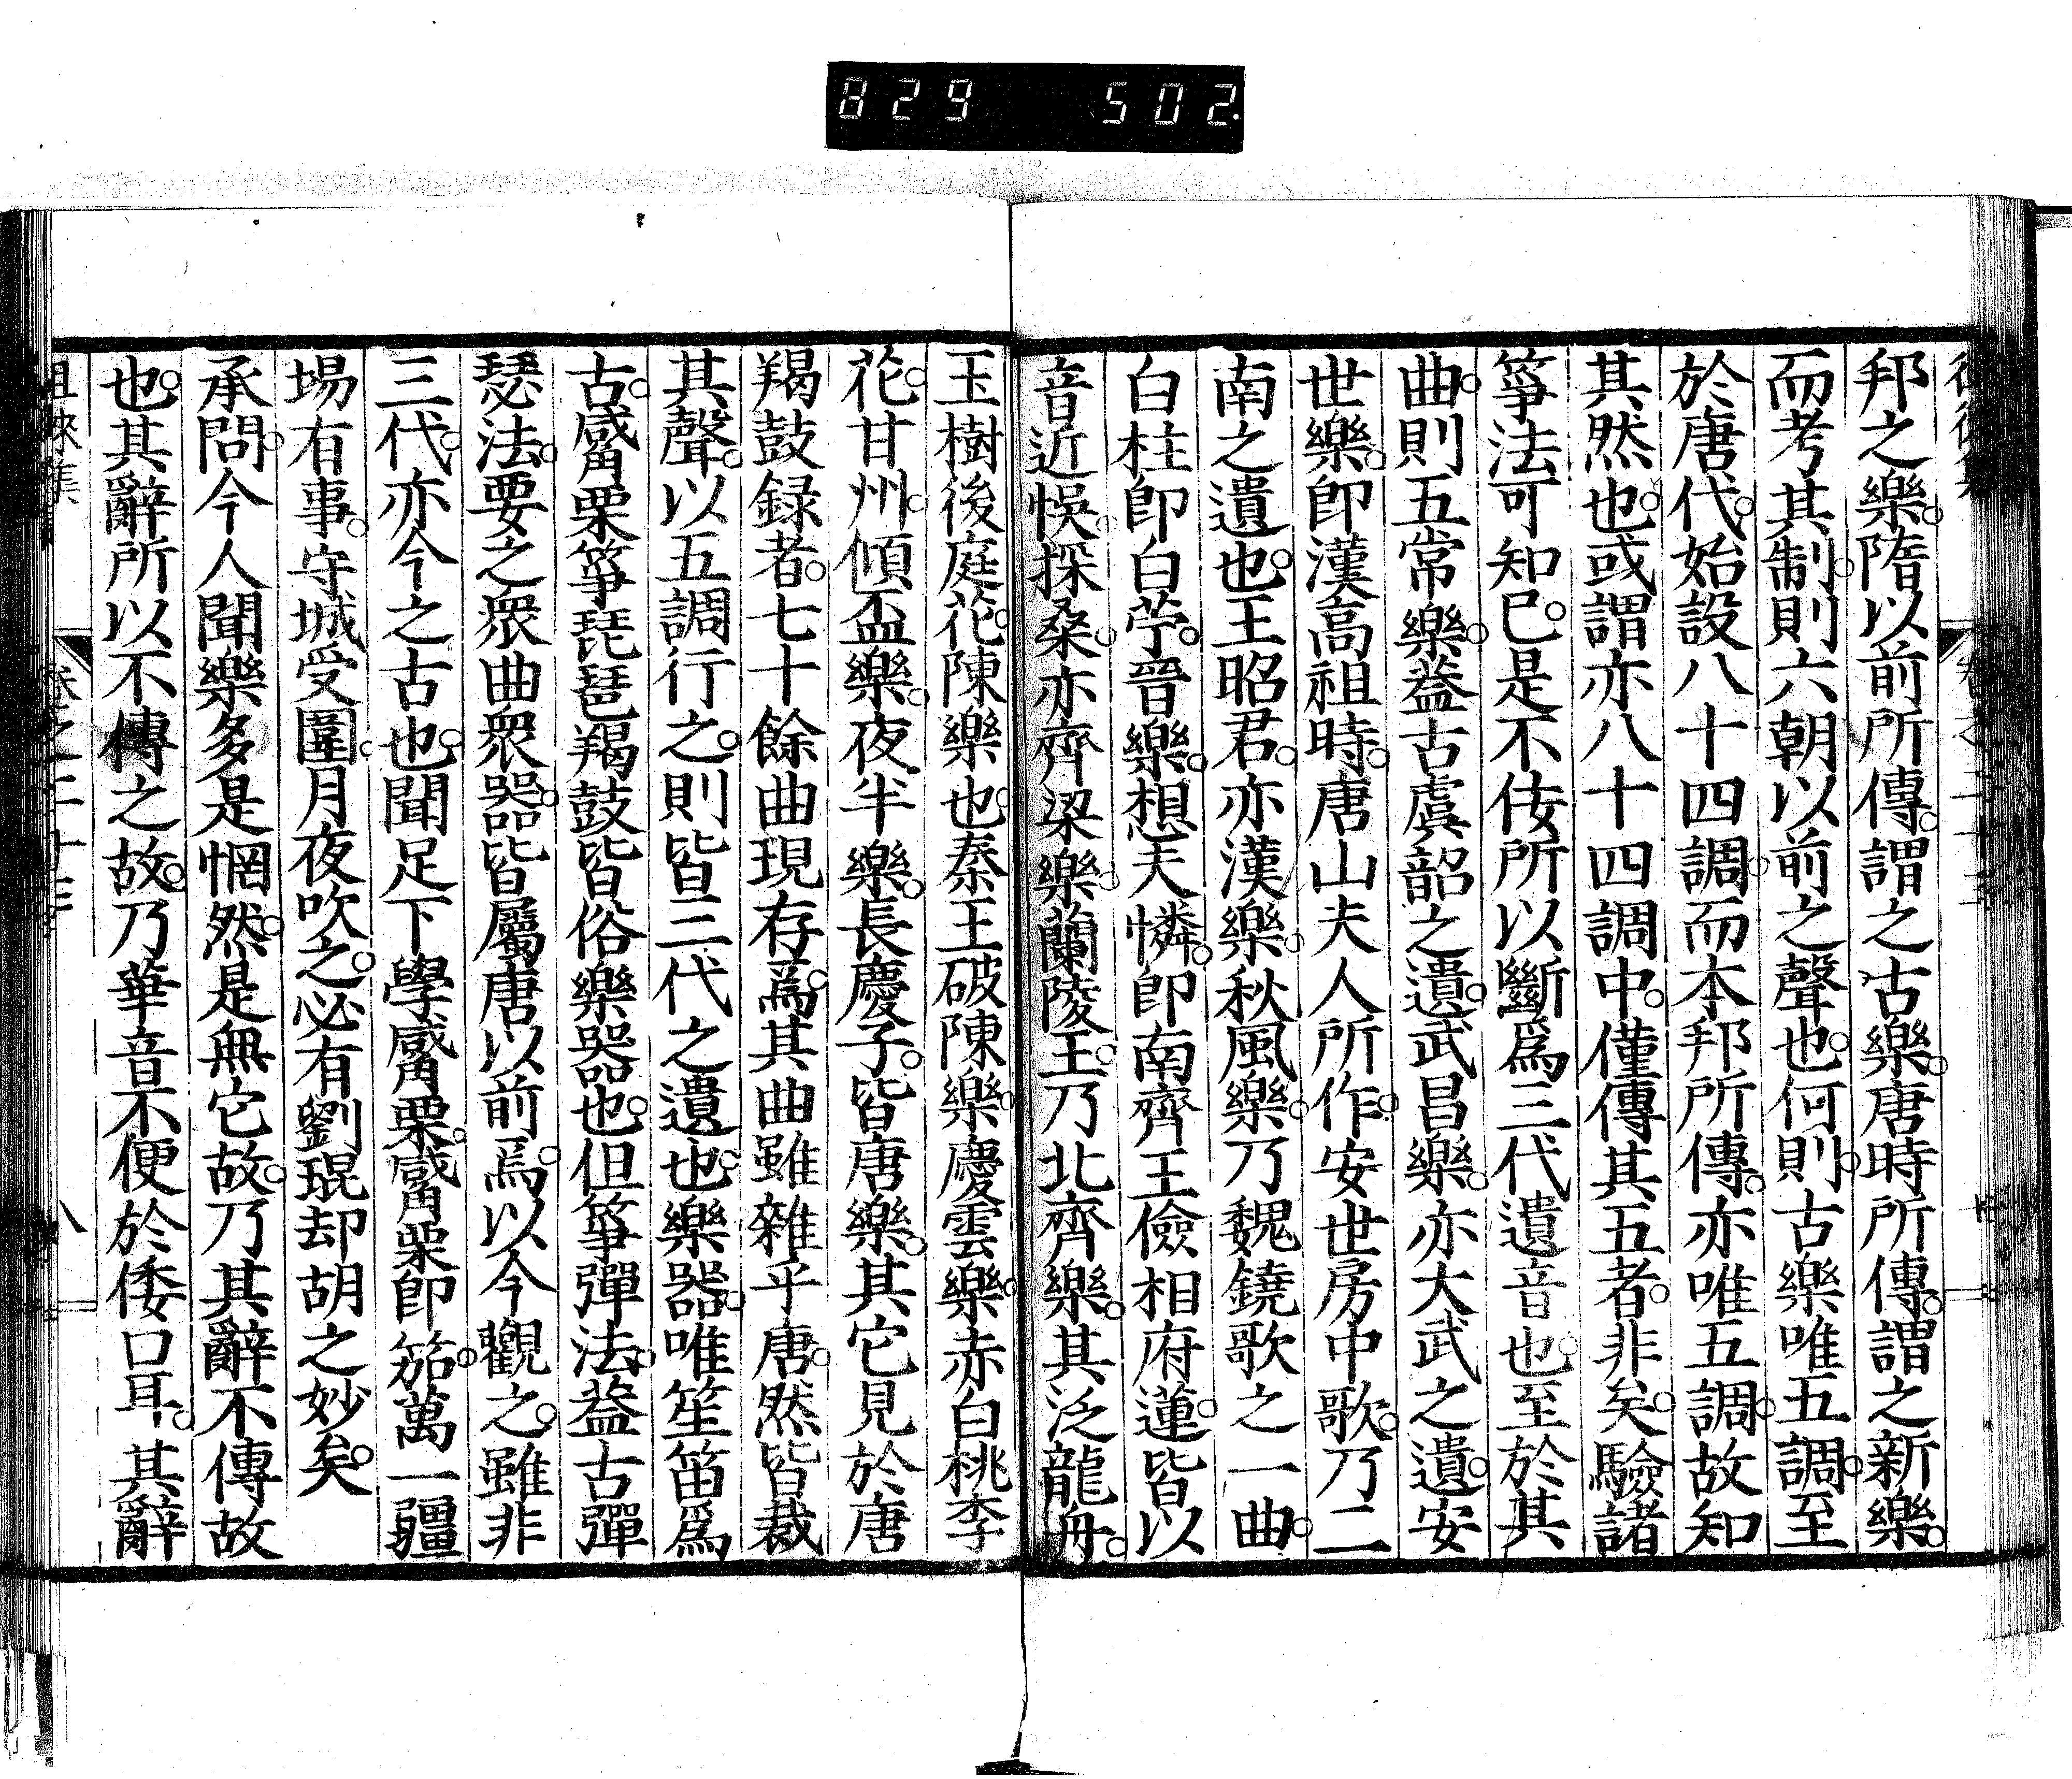 829 502.
邦之樂。隋以前所傳。謂之古樂。唐時所傳。謂之新樂。
而考其制。則六朝以前之聲也。何則。古樂唯五調。至
於唐代。始設八十四調。而本邦所傳。亦唯五調。故知
其然也。或謂亦八十四調中。僅傳其五者。非矣。驗諸
箏法可知已。是不佞所以斷爲三代遺音也。至於其
曲。則五常樂。蓋古虞韶之遺。武昌樂。亦大武之遺。安
世樂。卽漢高祖時。唐山夫人所作。安世房中歌。乃二
南之遺也。王昭君。亦漢樂。秋風樂。乃魏鐃歌之一曲。
白柱卽白苧。晉樂。想夫憐。卽南齊王儉相府蓮。皆以
音近悞。採桑。亦齊梁樂。蘭陵王。乃北齊樂。其泛龍舟。
玉樹後庭花。陳樂也。秦王破陳樂。慶雲樂。赤白桃李
花。甘州。傾盃樂。夜半樂。長慶子。皆唐樂。其它見於唐
羯鼓録者。七十餘曲現存。爲其曲雖雜乎唐。然皆裁
其聲。以五調行之。則皆三代之遺也。樂器。唯笙笛爲
古。觱栗箏琵琶羯鼓皆俗樂器也。但箏彈法。蓋古彈
瑟法。要之衆曲衆器。皆屬唐以前焉。以今觀之。雖非
三代。亦今之古也。聞足下學觱栗。觱栗卽笳。萬一疆
場有事。守城受圍。月夜吹之。必有劉琨却胡之妙矣。
承問。今人聞樂多是惘然。是無它故。乃其辭不傳故
也。其辭所以不傳之故。乃華音不便於倭口耳。其辭
八